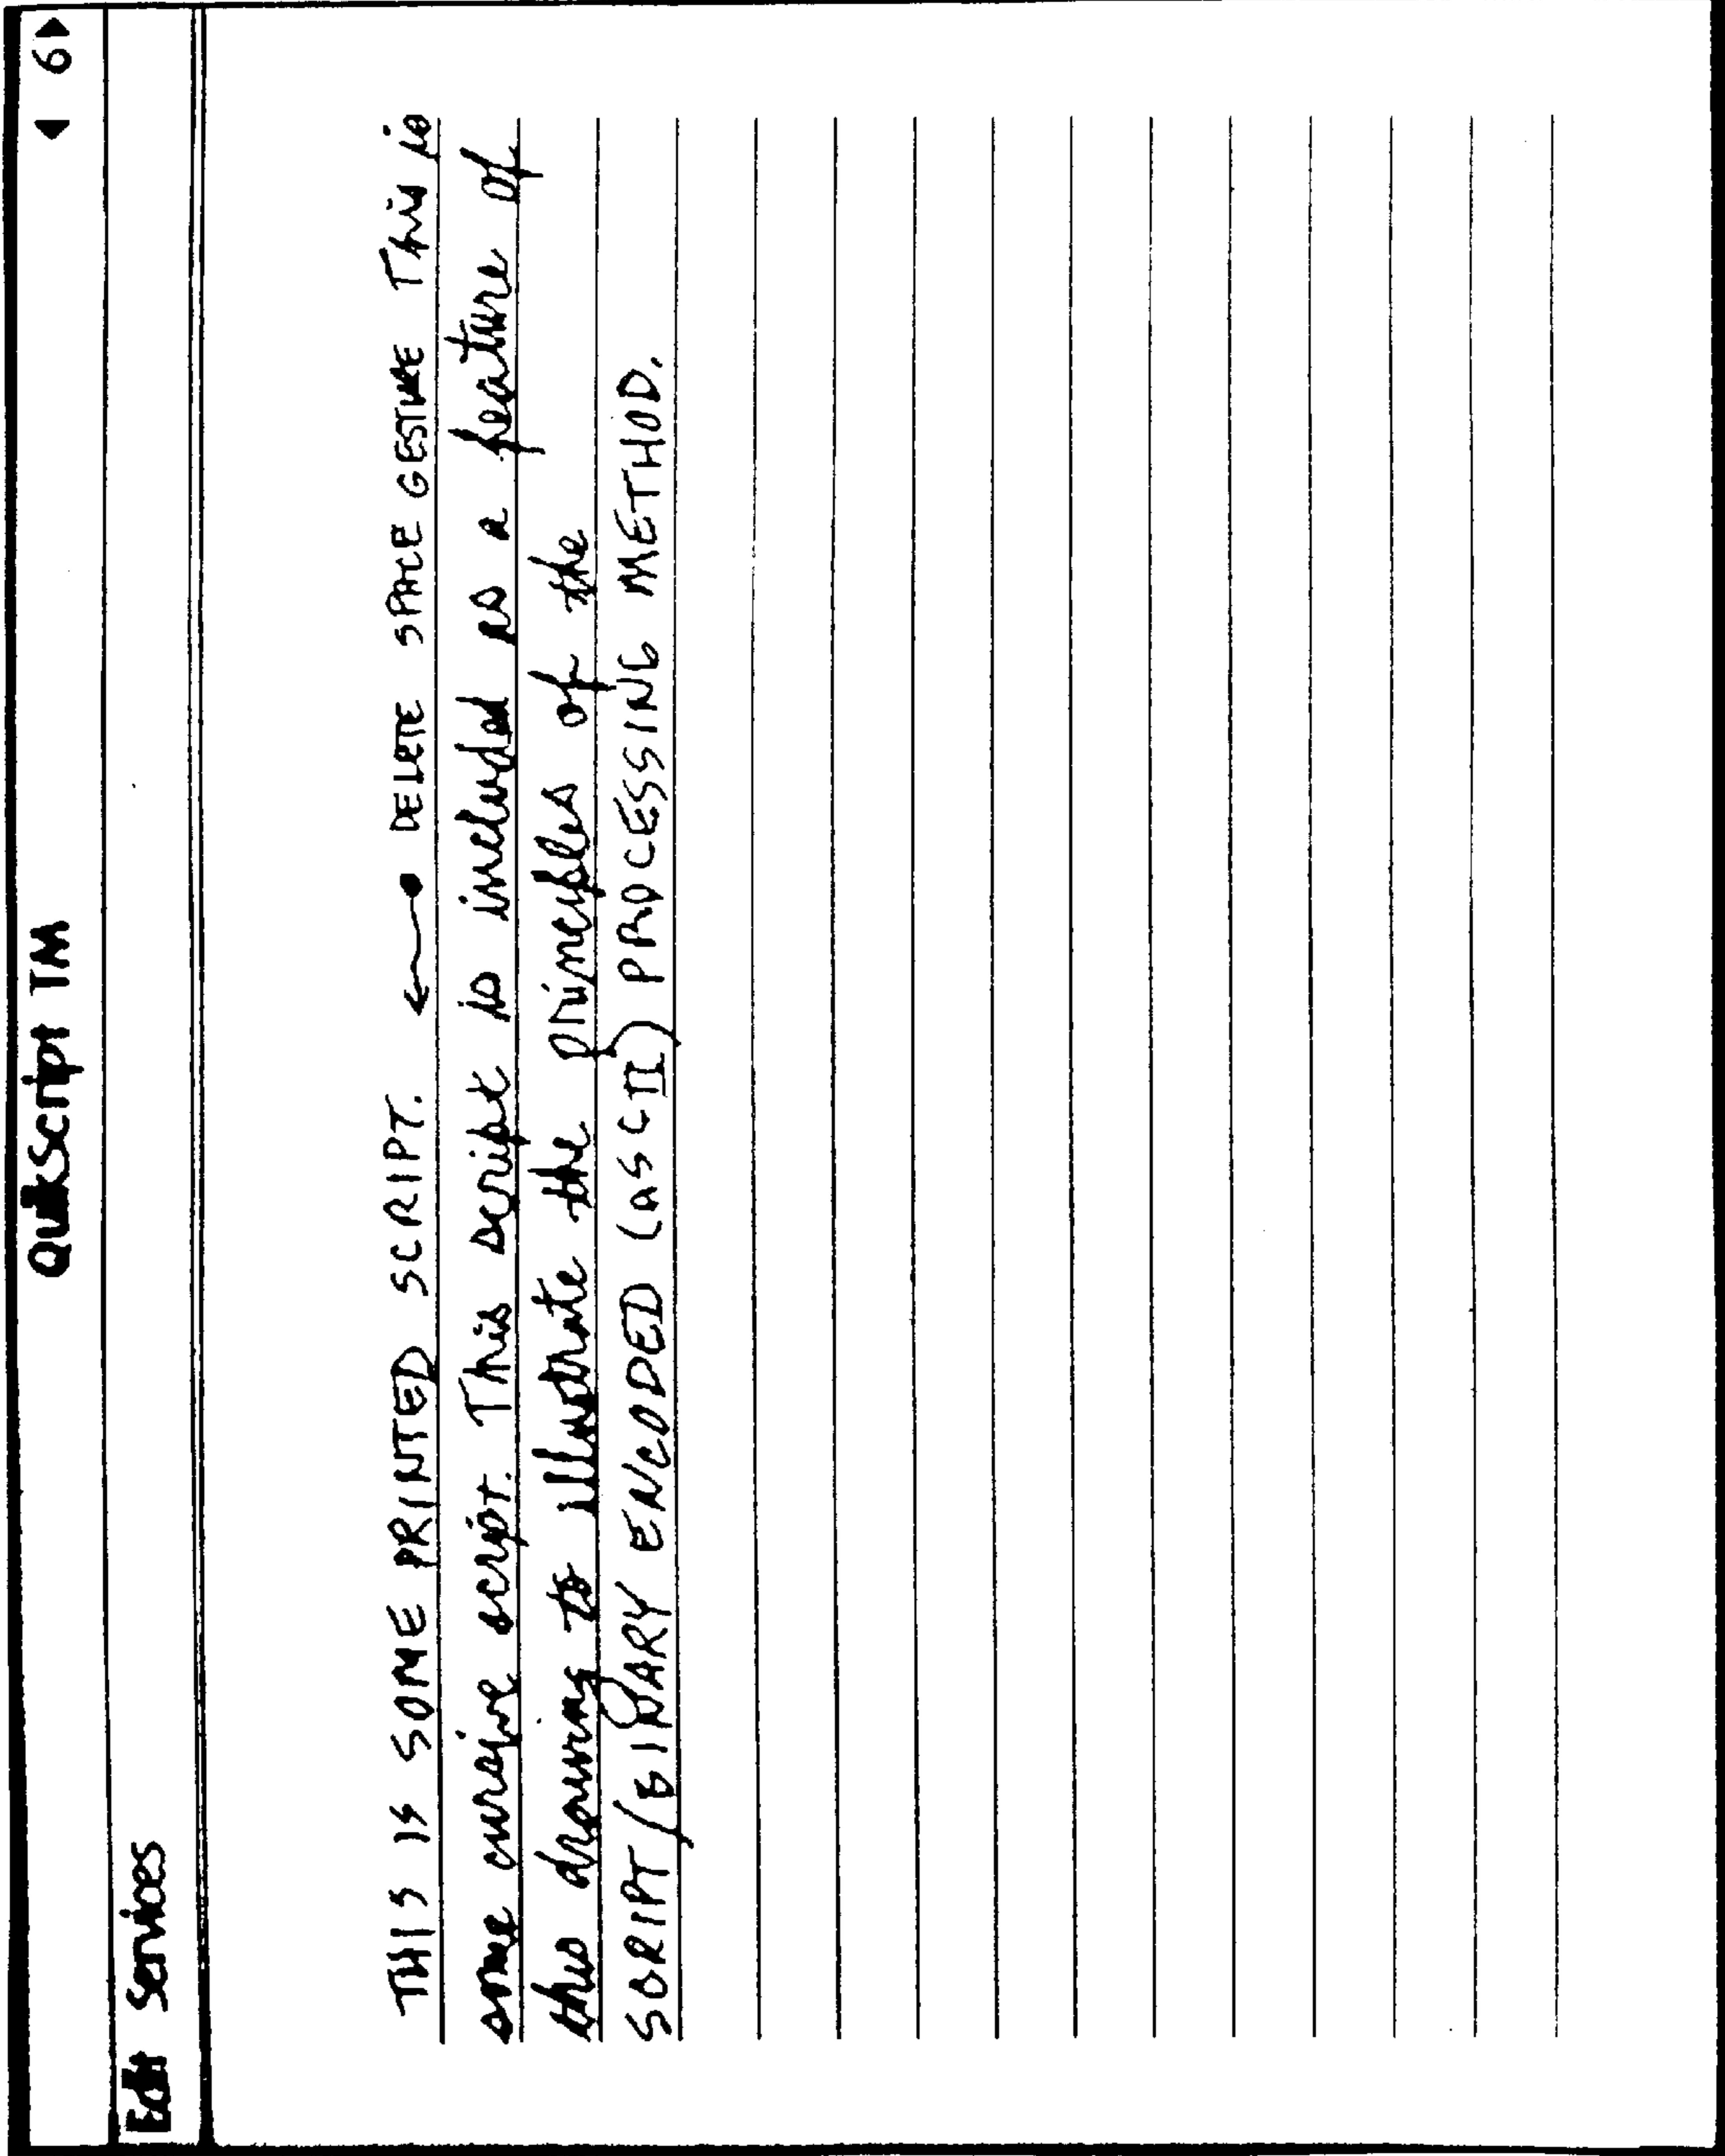 QuikScript TM ◀ 6▶
Edit Services
THIS IS SOME PRINTED SCRIPT. ←● DELETE SPACE GESTURE This is
some cursive script. This script is included as a feature of
this drawing to illustrate the principles of the
SCRIPT/BINARY ENCODED (ASCII) PROCESSING METHOD.